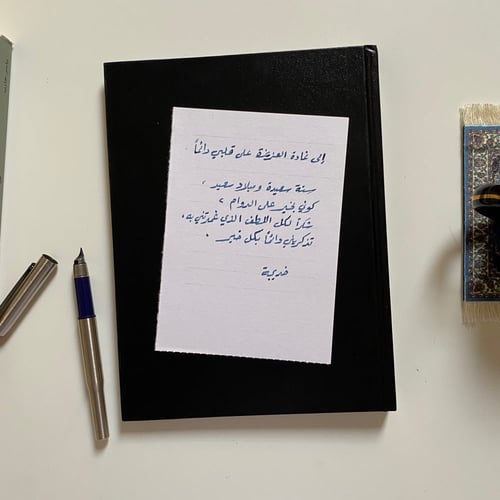 إلى غادة العزيزة على قلبي دائماً ،
سنة سعيدة وميلاد سعيد ،
كوني بخير على الدوام ،
شكراً لكل اللطف الذي غمرتني به،
تذكريني دائماً بكل خير .
خديجة